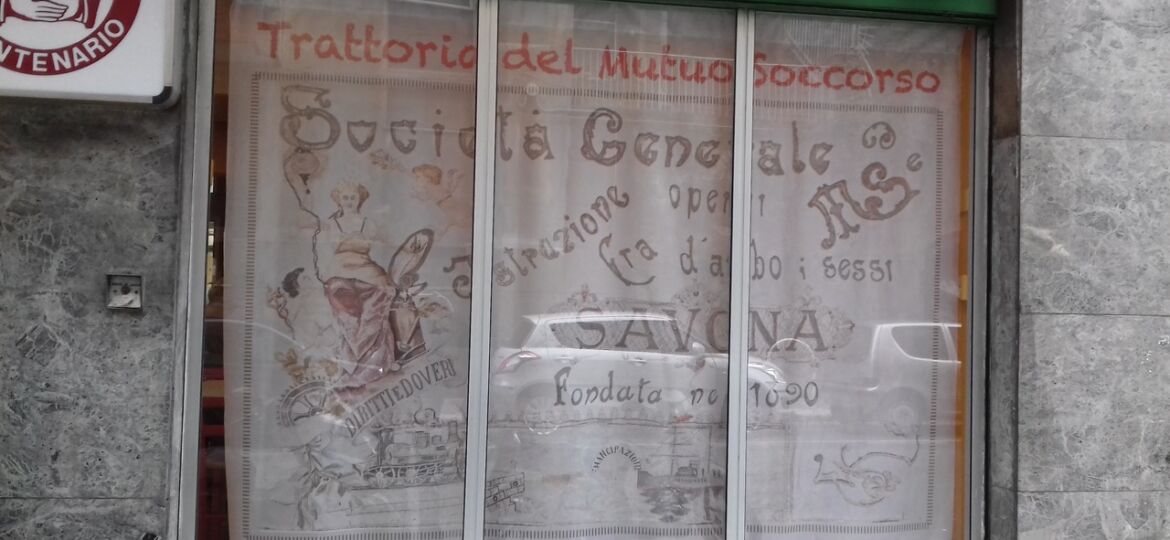 NTENARIO
Trattoria del Mutuo Soccorso
Società Generale
di MSe
Istrazione operai
Fra d'ambo i sessi
SAVONA
Fondata nel 1890
DIRITTI E DOVERI
EMANCIPAZIONE